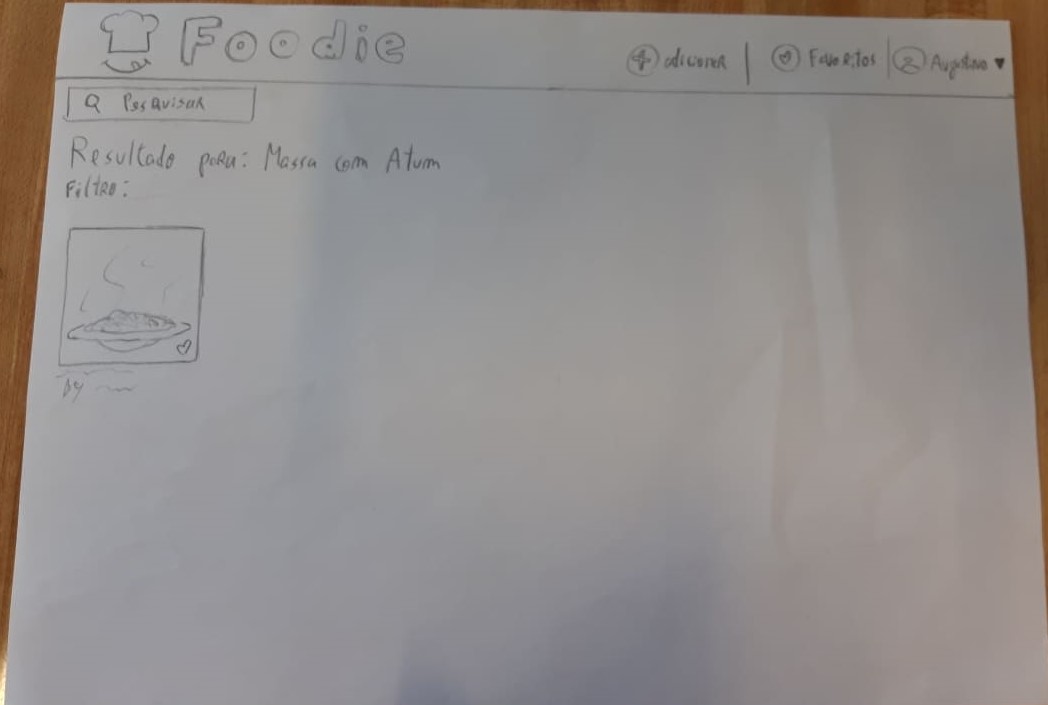 Foodie
adicionar | Favoritos | Augusto
Pesquisar
Resultado para: Massa com Atum
Filtro:
By